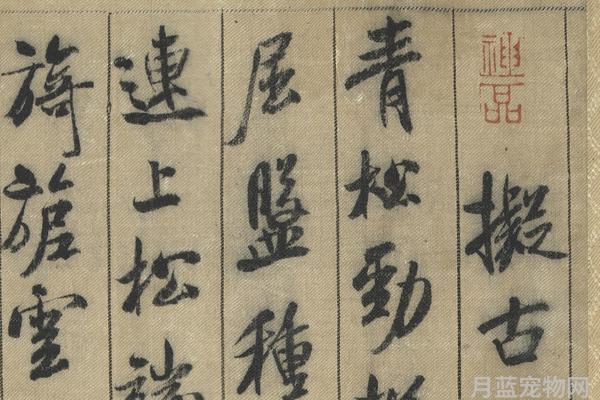 神品
擬古
青松勁
屈盤種
連上松
旖旎雲
月蓝宠物网